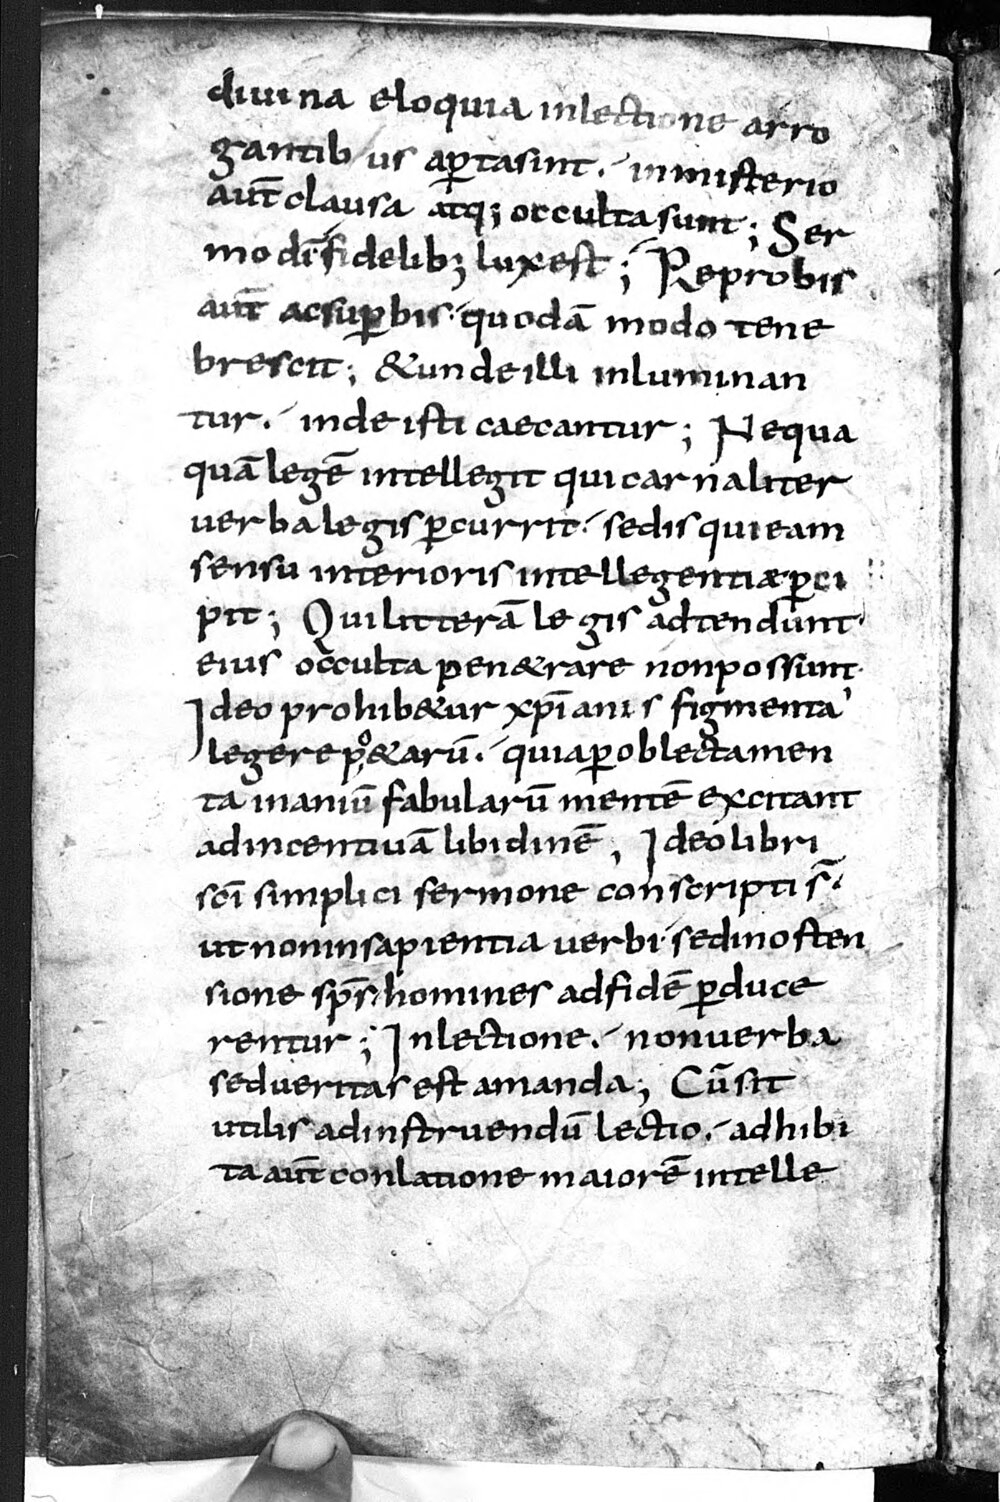 diuina eloquia inlectione arro
gantib us aꝑtasint. inmisterio
aut̄ clausa atq; occultasunt; Ser
mo dī fidelib; lux est; Reprobis
aut̄ acsuꝑbis quodā modo tene
brescit; &unde illi inluminan
tur. inde isti caecantur; Nequa
quā legē intellegit qui carnaliter
uerba legis ꝑcurrit. sed is qui eam
sensu interioris intellegentiæ ꝑci
pit; Qui litterā legis adtendunt
eius occulta pen&rare nonpossunt.
Ideo prohib&ur xp̄ianis figmenta
legere po&arū. quia ꝑ oblectamen
ta inaniū fabularū mentē excitant
adincentiuā libidinē, Ideo libri
sc̄i simplici sermone conscripti s̄.
ut noninsapientia uerbi sedinosten
sione sp̄s homines adfidē ꝑduce
rentur; Inlectione. nonuerba
sedueritas est amanda; Cū sit
utilis adinstruendū lectio. adhibi
ta aut̄ conlatione maiorē intelle